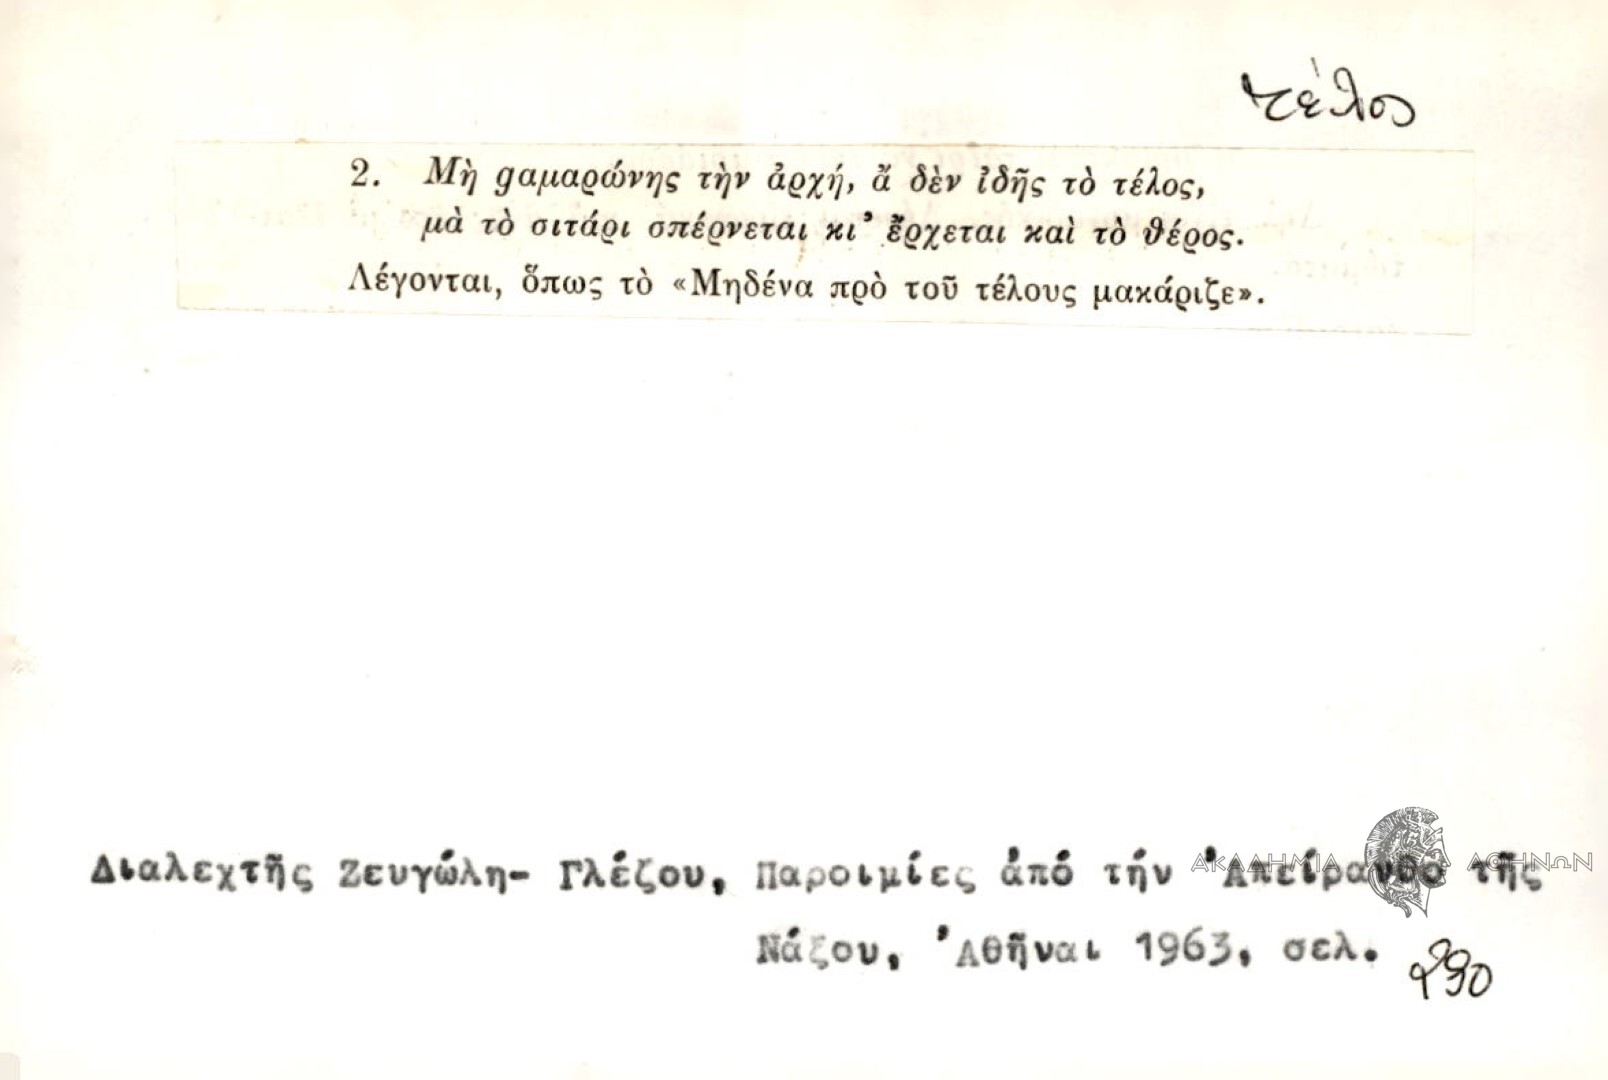 τέλος
2. Μὴ gαμαρώνης τὴν ἀρχή, ἄ δὲν ἰδῆς τὸ τέλος,
μὰ τὸ σιτάρι σπέρνεται κι᾿ ἔρχεται καὶ τὸ θέρος.
Λέγονται, ὅπως τὸ «Μηδένα πρὸ τοῦ τέλους μακάριζε».
ΑΚΑΔΗΜΙΑ ΑΘΗΝΩΝ
Διαλεχτῆς Ζευγώλη- Γλέζου, Παροιμίες ἀπό τήν Ἀπείρανθο τῆς
Νάξου, Ἀθῆναι 1963, σελ. 290